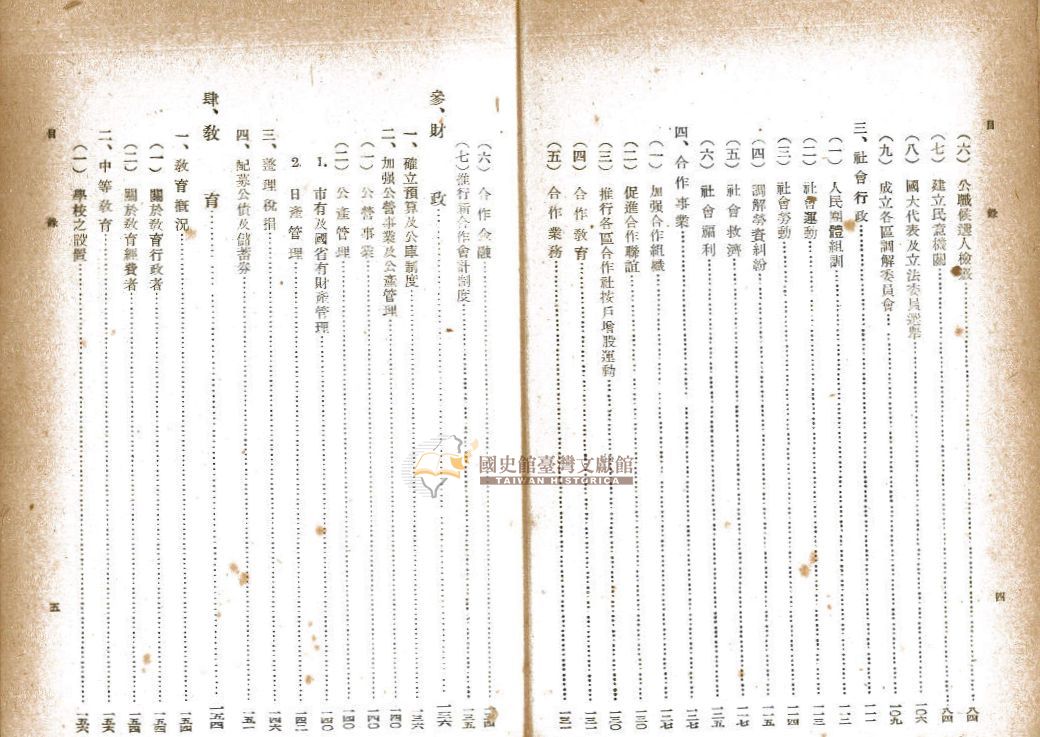 目錄
四
(六) 公職候選人檢覈……八四
(七) 建立民意機關……八四
(八) 國大代表及立法委員選舉……一〇六
(九) 成立各區調解委員會……一〇九
三、社會行政……一一一
(一) 人民團體組訓……一一二
(二) 社會運動……一一三
(三) 社會勞動……一一四
(四) 調解勞資糾紛……一一五
(五) 社會救濟……一一七
(六) 社會福利……一二五
四、合作事業……一二七
(一) 加强合作組織……一二七
(二) 促進合作聯誼……一三〇
(三) 推行各區合作社按戶增股運動……一三〇
(四) 合作敎育……一三一
(五) 合作業務……一三一
(六) 合作金融……
(七) 推行新合作會計制度……一三五
參、財政……一三六
一、確立預算及公庫制度……一三六
二、加强公營事業及公產管理……一四〇
(一) 公營事業……一四〇
(二) 公產管理……一四〇
1. 市有及國省有財產管理……一四〇
2. 日產管理……一四二
三、整理稅捐……一四六
四、配募公債及儲蓄券……一五二
肆、敎育……一五四
一、敎育槪況……一五四
(一) 關於敎育行政者……一五四
(二) 關於敎育經費者……一五四
二、中等敎育……一五六
(一) 學校之設置……一五六
目錄
五
國史館臺灣文獻館
TAIWAN HISTORICA